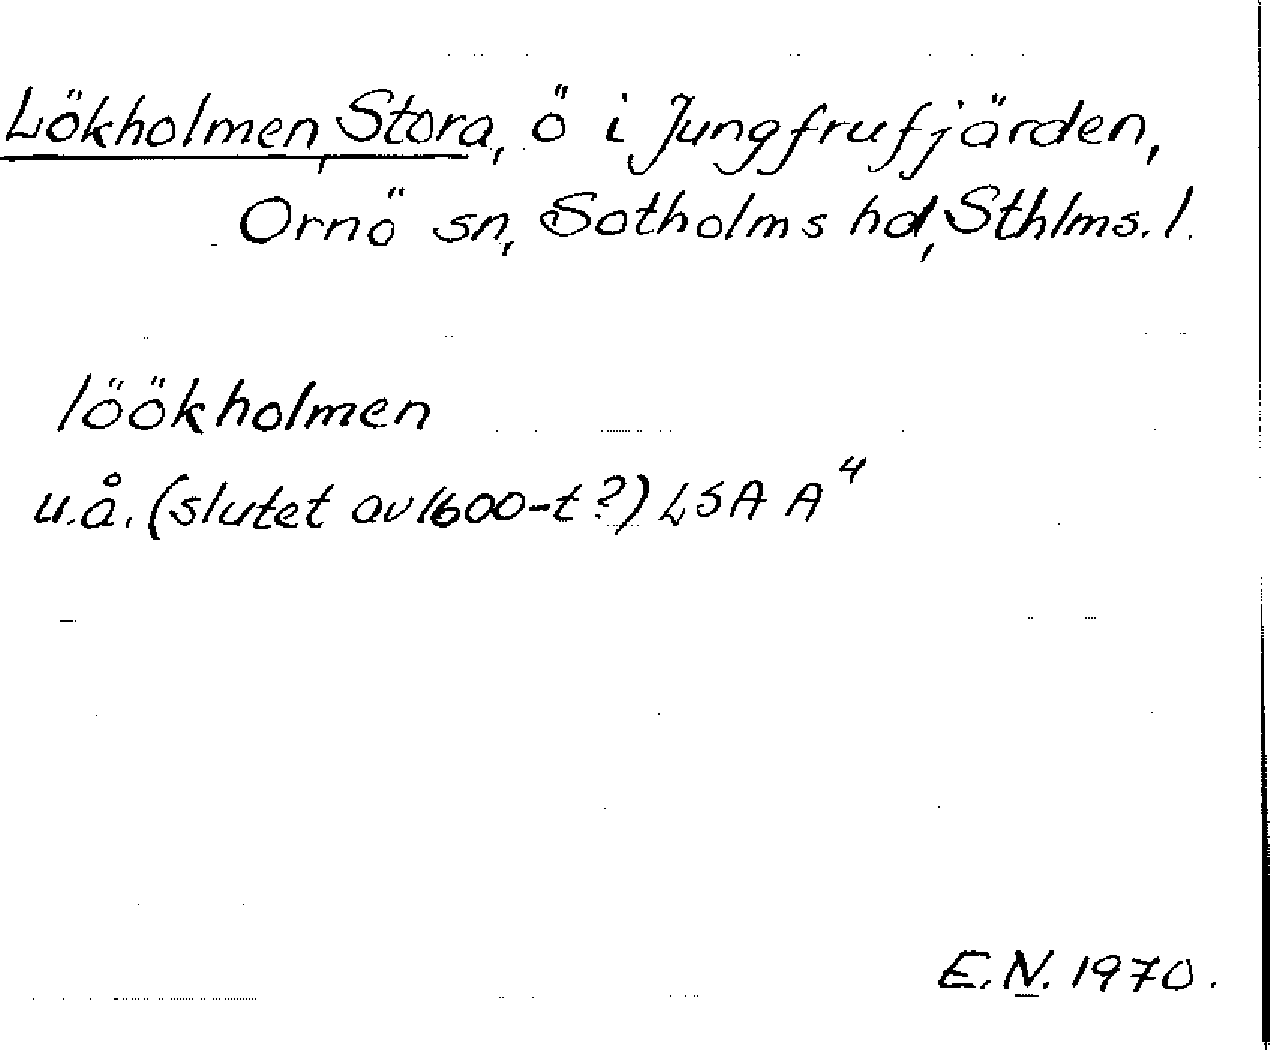 Lökholmen, Stora, ö i Jungfrufjärden,
Ornö sn, Sotholms hd, Sthlms. l.
löökholmen
u.å. (slutet av 1600-t?) LSA A⁴
E.N. 1970.